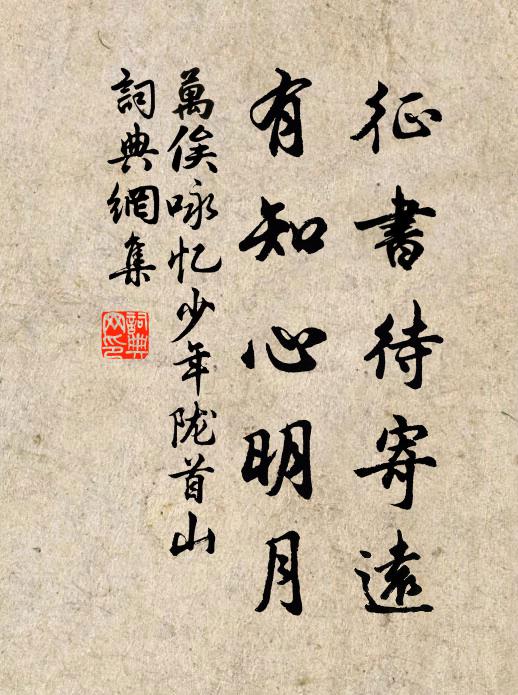 征書待寄遠
有知心明月
萬俟咏忆少年陇首山
詞典網集
詞典
网印